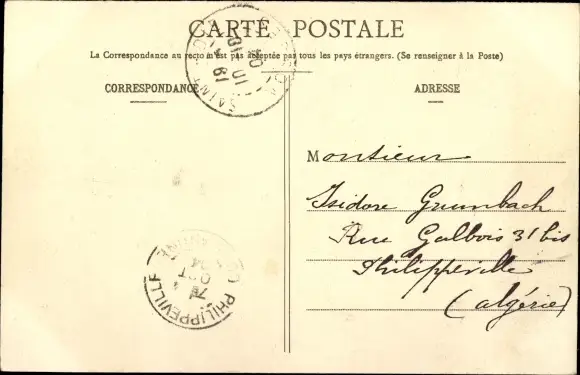 CARTE POSTALE
La Correspondance au recto n'est pas acceptée par tous les pays étrangers. (Se renseigner à la Poste)
CORRESPONDANCE
ADRESSE
Monsieur
Isidore Grumbach
Rue Galbois 31 bis
Philippeville
(algérie)
SAINT
PHILIPPEVILLE
OCT
04